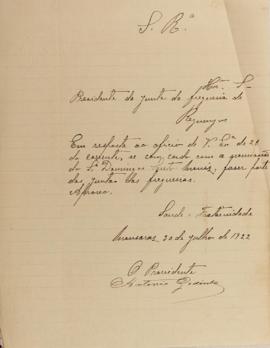 S. R.ª
Presidente da Junta de freguesia de
Reguengos
Em resposta ao oficio de V. Ex.ª de 28
do corrente, se concorda com a
do S.r Domingos fazer parte
das juntas das freguesias
Saude e Fraternidade
Monsaraz, 30 de julho de 1922
O Presidente
Antonio